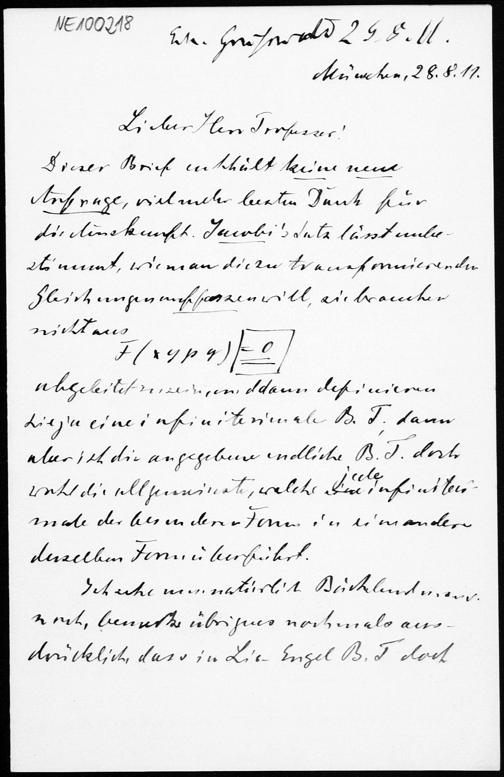 NE100218
Erh. Greifswald 29.8.11.
München, 28.8.11.
Lieber Herr Professor!
Dieser Brief enthält keine neue
Anfrage, vielmehr besten Dank für
die Auskunft. Jacobi's Satz lässt unbe-
stimmt, wie man die zu transformierenden
Gleichungen auffassen will, sie brauchen
nicht aus
F(x y p q) = 0
abgeleitet zu sein, und dann definieren
sie ja eine infinitesimale B. T., dann
aber ist die angegebene endliche B. T. doch
wohl die allgemeinste, welche jede infinitesi-
male der besonderen Form in eine andere
derselben Form überführt.
Ich sehe nun natürlich Bäcklund
noch, bemerke übrigens nochmals aus-
drücklich, dass in Lie-Engel B. T. doch